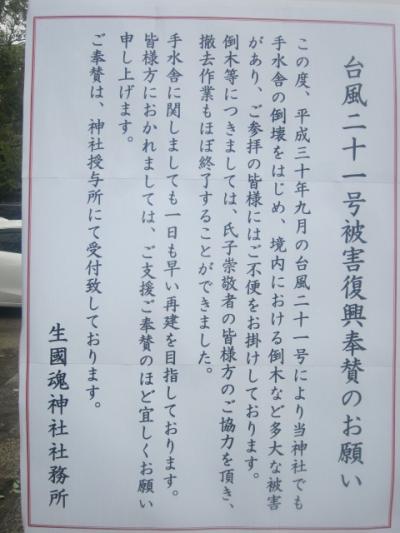 台風二十一号被害復興奉賛のお願い
この度、平成三十年九月の台風二十一号により当神社でも
手水舎の倒壊をはじめ、境内における倒木など多大な被害
があり、ご参拝の皆様にはご不便をお掛けしております。
倒木等につきましては、氏子崇敬者の皆様方のご協力を頂き、
撤去作業もほぼ終了することができました。
手水舎に関しましても一日も早い再建を目指しております。
皆様方におかれましては、ご支援ご奉賛のほど宜しくお願い
申し上げます。
ご奉賛は、神社授与所にて受付致しております。
生國魂神社社務所